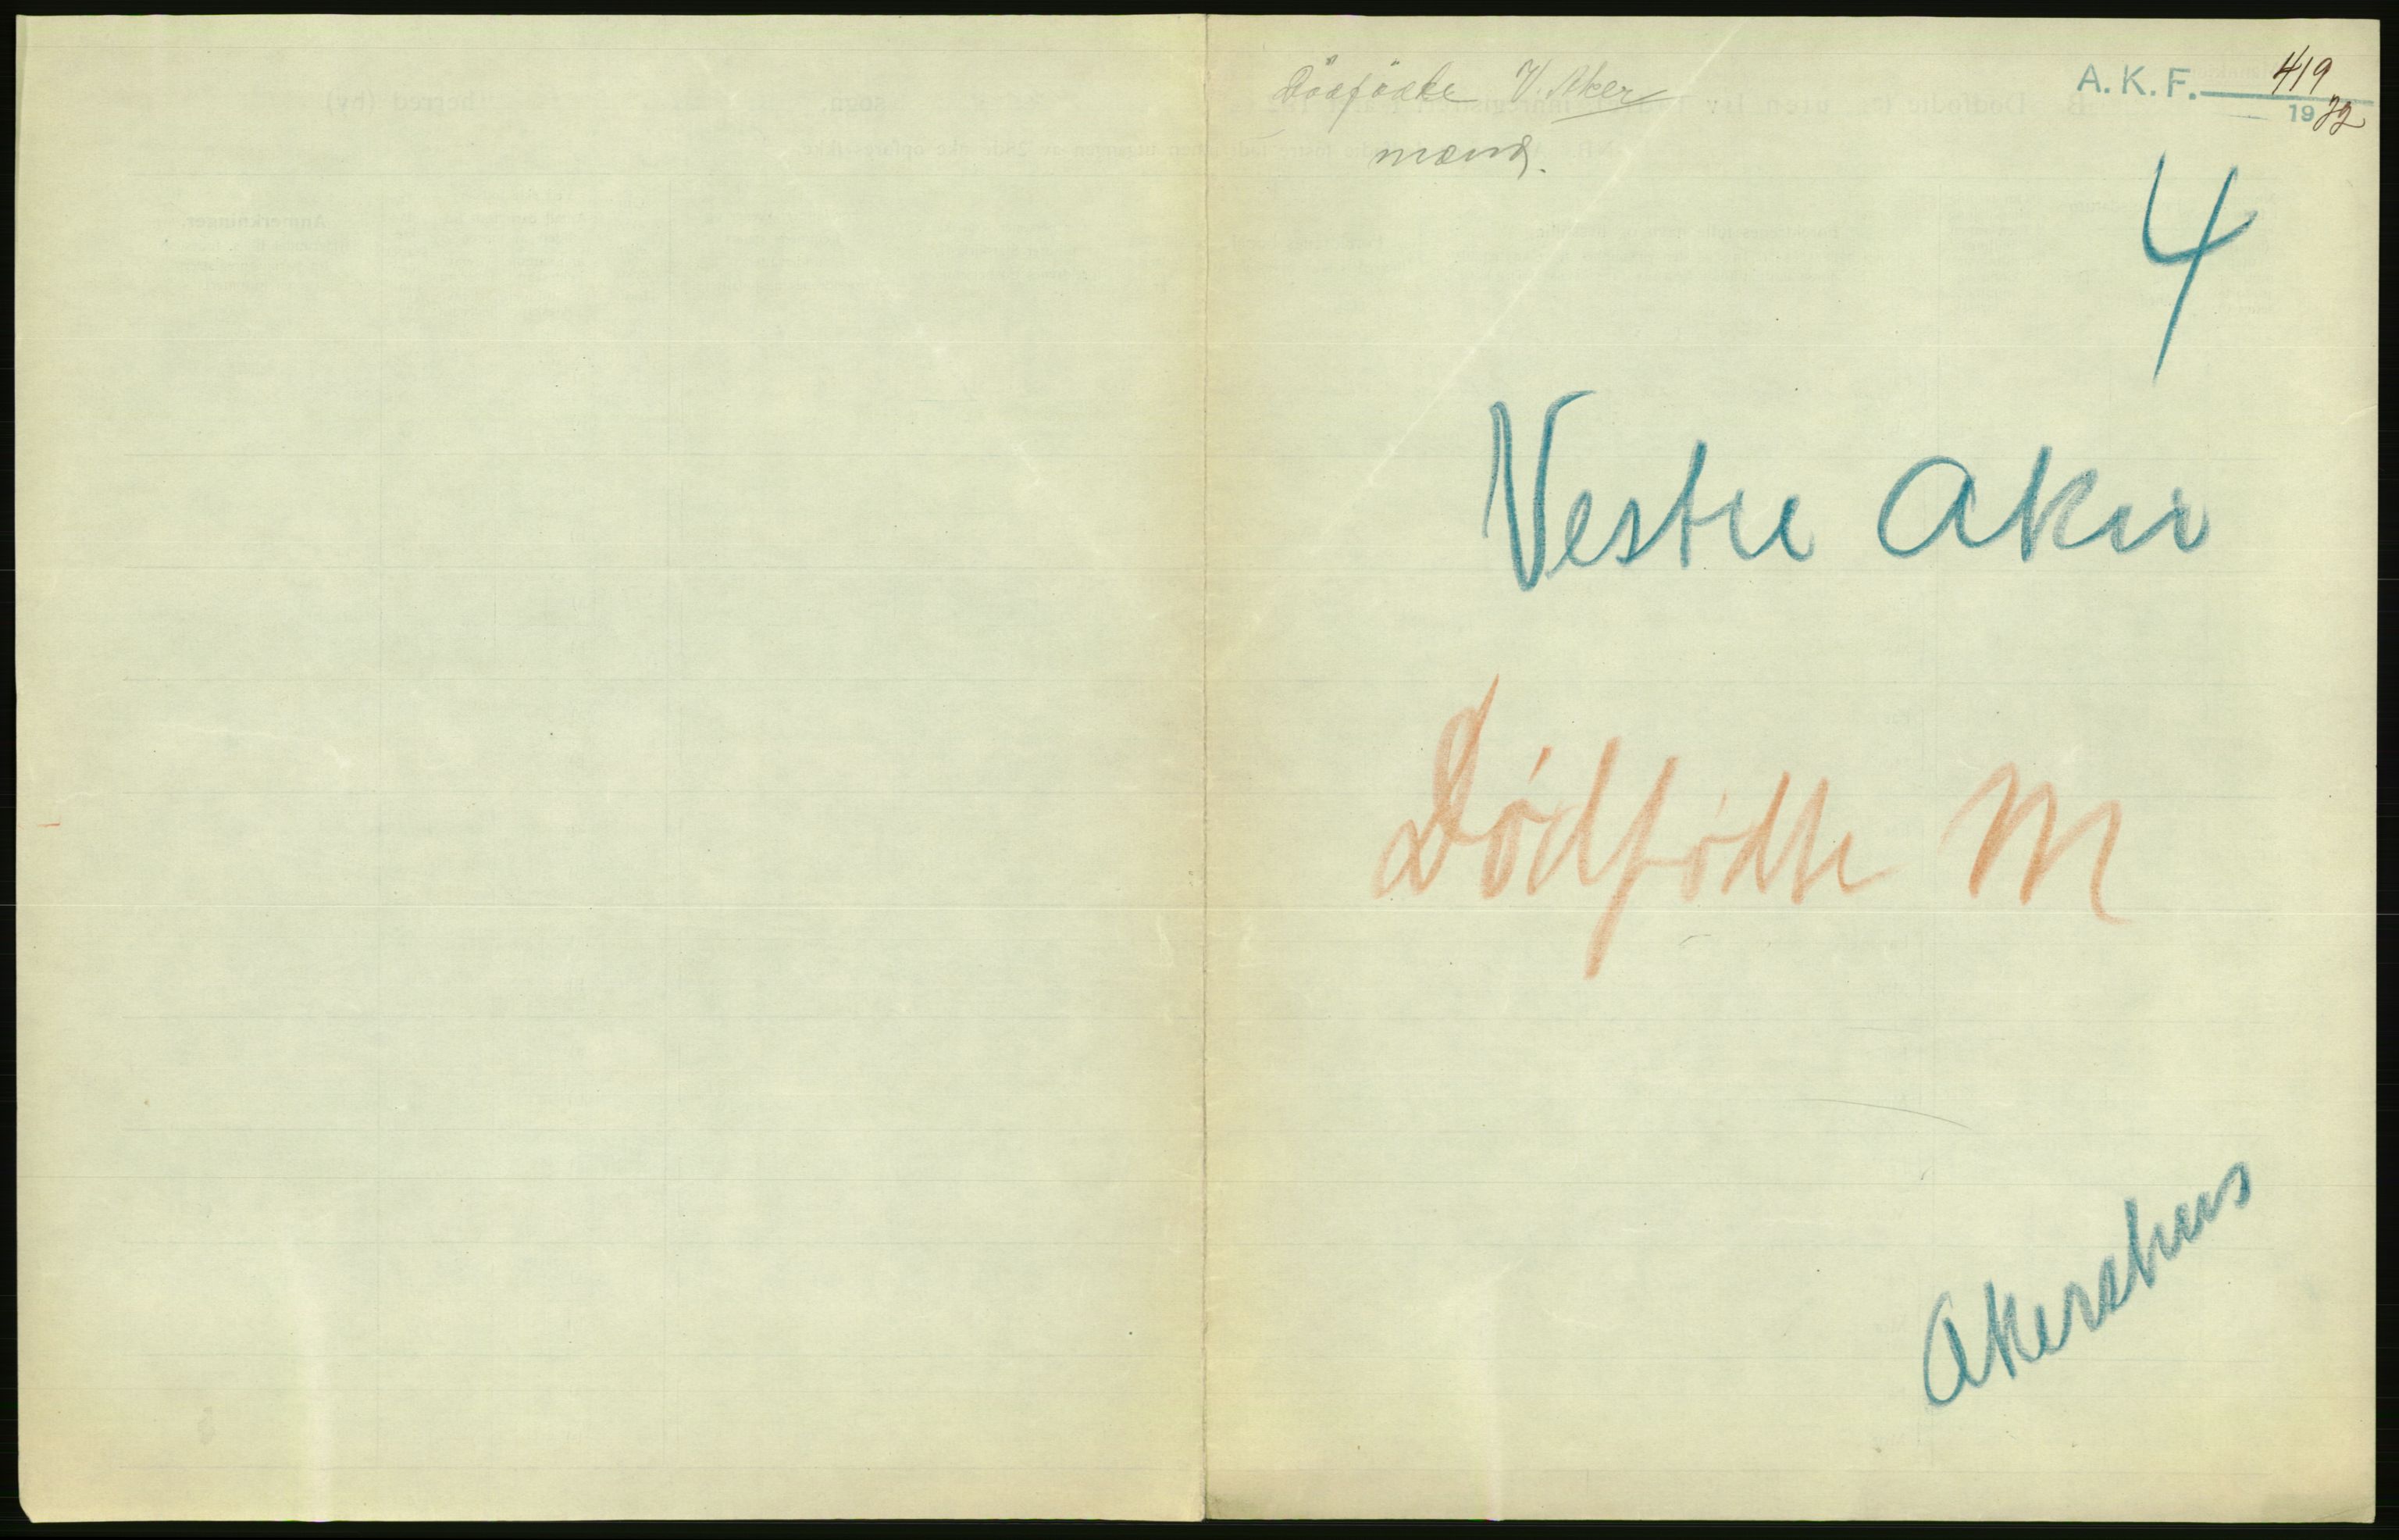 Dödfödte V. Aker
mænd.
A. K. F. 419
1932
4
Vestre Aker
Dødfødte M
Akershus